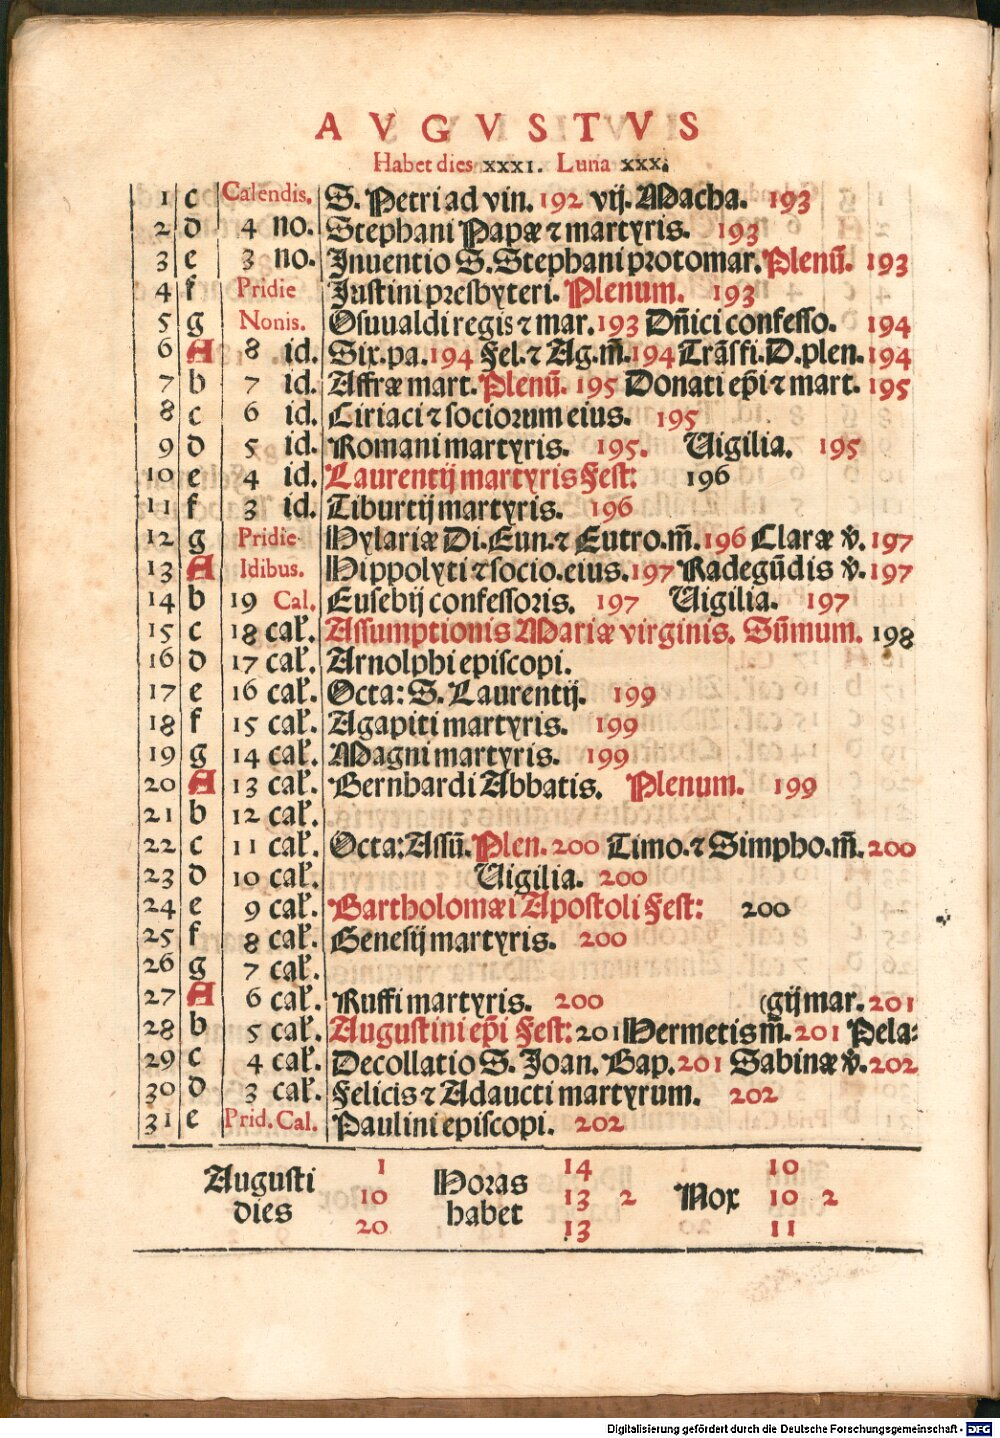 AVGVSTVS
Habet dies xxxi. Luna xxx.
1 c Calendis. S. Petri ad vin. 192 vij. Macha. 193
2 d 4 no. Stephani Papæ ⁊ martyris. 193
3 e 3 no. Inuentio S. Stephani protomar. Plenũ. 193
4 f Pridie Iustini presbyteri. Plenum. 193
5 g Nonis. Osuualdi regis ⁊ mar. 193 Dñici confesso. 194
6 A 8 id. Six. pa. 194 Fel. ⁊ Ag. m̃. 194 Trãsfi. D. plen. 194
7 b 7 id. Affræ mart. Plenũ. 195 Donati ep̃i ⁊ mart. 195
8 c 6 id. Ciriaci ⁊ sociorum eius. 195
9 d 5 id. Romani martyris. 195. Uigilia. 195
10 e 4 id. Laurentij martyris Fest: 196
11 f 3 id. Tiburtij martyris. 196
12 g Pridie Hylariæ Di. Eun. ⁊ Eutro. m̃. 196 Claræ v̄. 197
13 A Idibus. Hippolyti ⁊ socio. eius. 197 Radegũdis v̄. 197
14 b 19 Cal. Eusebij confessoris. 197 Uigilia. 197
15 c 18 cal̃. Assumptionis Mariæ virginis. Sũmum. 198
16 d 17 cal̃. Arnolphi episcopi.
17 e 16 cal̃. Octa: S. Laurentij. 199
18 f 15 cal̃. Agapiti martyris. 199
19 g 14 cal̃. Magni martyris. 199
20 A 13 cal̃. Bernhardi Abbatis. Plenum. 199
21 b 12 cal̃.
22 c 11 cal̃. Octa: Assũ. Plen. 200 Timo. ⁊ Simpho. m̃. 200
23 d 10 cal̃. Uigilia. 200
24 e 9 cal̃. Bartholomæi Apostoli Fest: 200
25 f 8 cal̃. Genesij martyris. 200
26 g 7 cal̃.
27 A 6 cal̃. Ruffi martyris. 200 (gij mar. 201
28 b 5 cal̃. Augustini ep̃i Fest: 201 Hermetis m̃. 201 Pela:
29 c 4 cal̃. Decollatio S. Ioan. Bap. 201 Sabinæ v̄. 202
30 d 3 cal̃. Felicis ⁊ Adaucti martyrum. 202
31 e Prid. Cal. Paulini episcopi. 202
Augusti dies 1 10 20 Horas habet 14 13 2 13 Nox 10 10 2 11
Digitalisierung gefördert durch die Deutsche Forschungsgemeinschaft - DFG